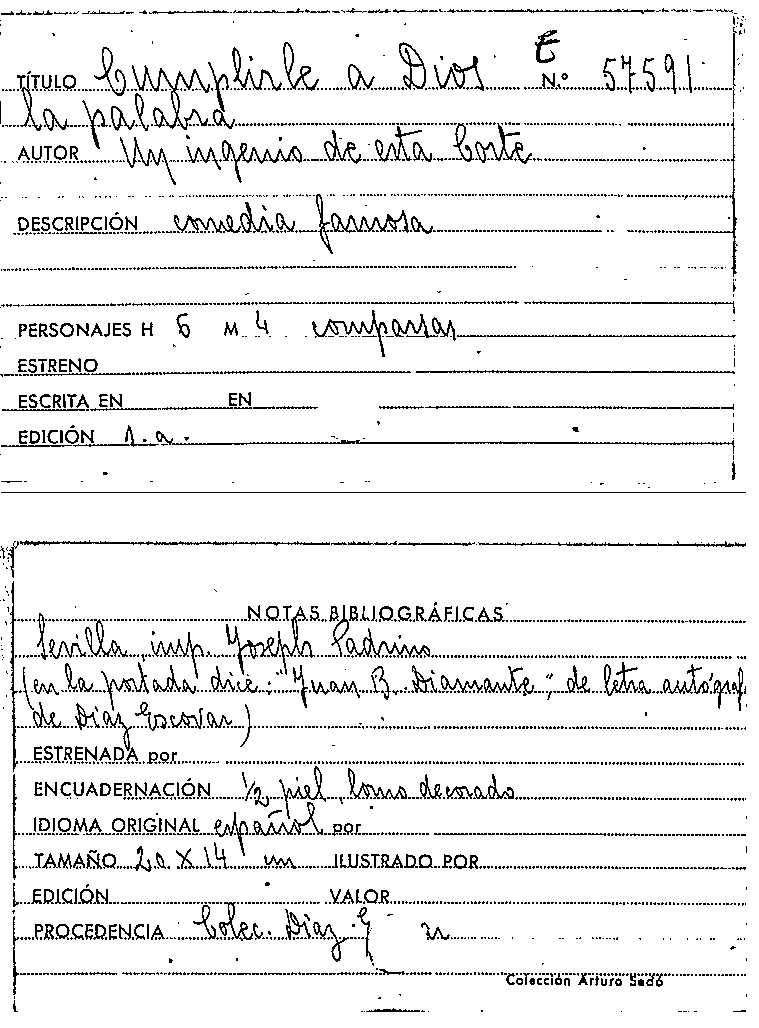 E
TÍTULO Cumplirle a Dios N.º 57591
la palabra
AUTOR Un ingenio de esta Corte
DESCRIPCIÓN comedia famosa
PERSONAJES H 6 M 4 comparsas
ESTRENO
ESCRITA EN EN
EDICIÓN 1.a.
NOTAS BIBLIOGRÁFICAS
Sevilla, imp. Joseph Padrino
(en la portada dice: "Juan B. Diamante", de letra autógraf
de Díaz Escovar)
ESTRENADA por
ENCUADERNACIÓN 1/2 piel, lomo decorado
IDIOMA ORIGINAL español por
TAMAÑO 20 X 14 cm ILUSTRADO POR
EDICIÓN VALOR
PROCEDENCIA Colec. Díaz E
Colección Arturo Sedó